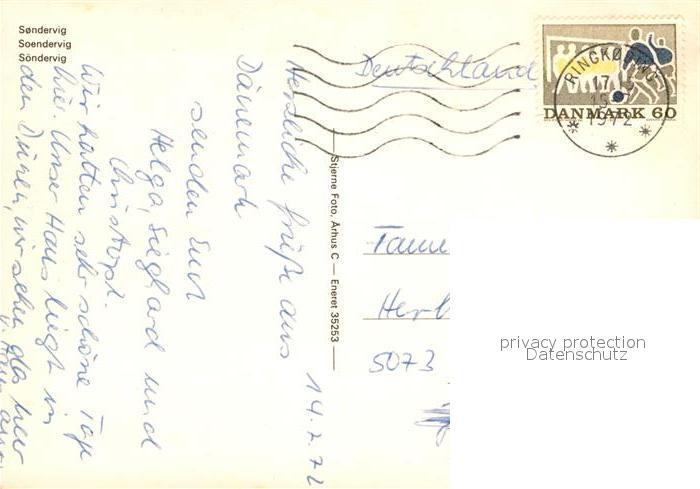 Søndervig
Soendervig
Söndervig
14.7.72
Herzliche Grüße aus
Dänemark
senden Euch
Helga, Sieghard und
Christoph.
Wir hatten sehr schöne Tage
hier. Unser Haus liegt in
den Dünen, wir sehen das Meer
Stjerne Foto, Århus C — Eneret 35253
Deutschland
RINGKØBING
17
1972
DANMARK 60
Fame
Herb
5073
privacy protection
Datenschutz